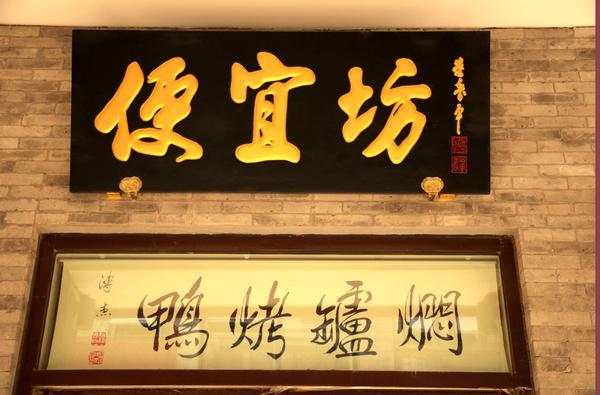 便宜坊
燜鑪烤鴨
溥杰